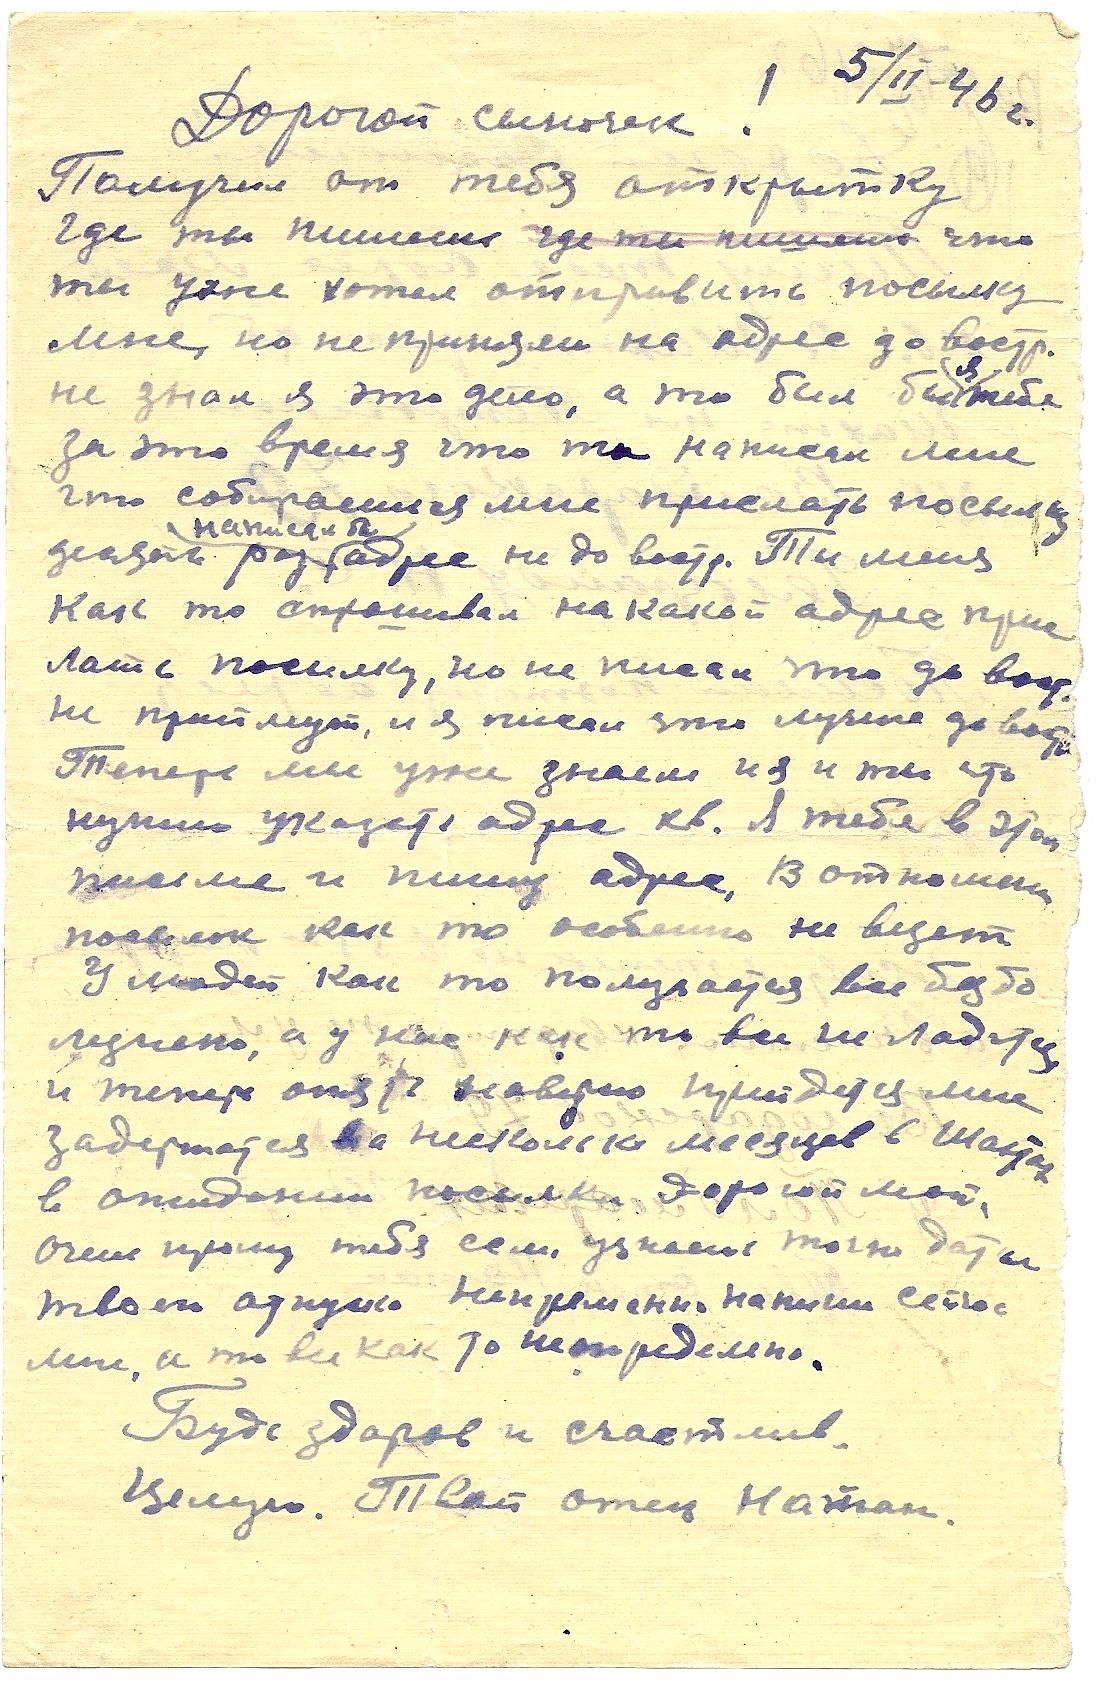 5/II-46 г.
Дорогой сыночек !
Получил от тебя открытку
где ты пишешь где ты пишешь что
ты уже хотел отправить посылку
мне, но не приняли на адрес до востр.
не знал я это дело, а то был бы я тебе
за это время что ты написал мне
что собираешися мне прислать посылку
написал бы
десять раз адрес не до востр. Ти меня
как то спрошивал на какой адрес прис
лать посилку, но не писал что до вост.
не приймут, и я писал что лучше до востр
Теперь ми уже знаем и я и ты что
нужно указать адрес кв. Я тебе в этом
писме и пишу адрес, В отношени
посылок как то особенно не везет
У людей как то получается все безбо
лезнено, а у нас как то все не ладится
и теперь опять наверно прийдется мне
задержатся на несколько месяцев в Шахтах
в ожидании посылки Дорогой мой,
очень прошу тебя если узнаешь точно даты
твоего отпуска непременно напиши сейчас
мне, а то все как то неопределено.
Будь здоров и счастлив.
Целую. Твой отец Натан.